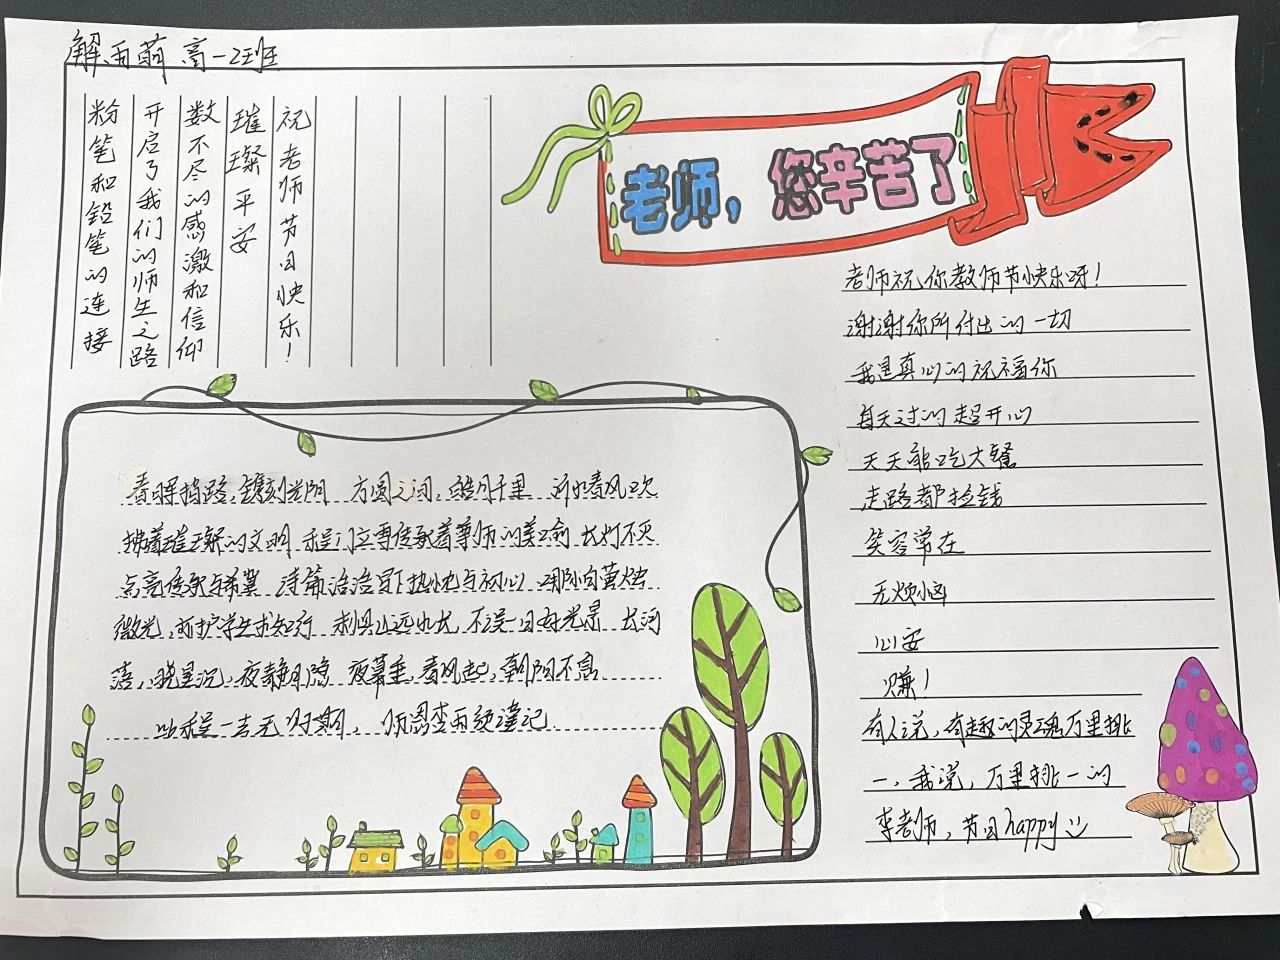 解雨萌 高一2班
粉笔和铅笔的连接
开启了我们的师生之路
数不尽的感激和信仰
璀璨平安
祝老师节日快乐！
老师，您辛苦了
老师祝你教师节快乐呀！
谢谢你所付出的一切
我是真心的祝福你
每天过的超开心
天天能吃大餐
走路都捡钱
笑容常在
无烦恼
心安
赚！
有人说，有趣的灵魂万里挑
一，我说，万里挑一的
李老师，节日happy
春晖挡路，镌刻光阴 方圆之间，皓月千里 沂水春风吹
拂着璀璨的文明 程门立雪传承着尊师的美喻 长灯不灭
点亮传承与希冀 诗篇洽洽写下热忱与初心 萤烛
微光，呵护学生求知行 山远水长，不误一日好光景 长河
落，晓星沉，夜静月隐 夜幕垂，春风起，朝阳不息
此程一去无归期， 师恩李雨绫谨记